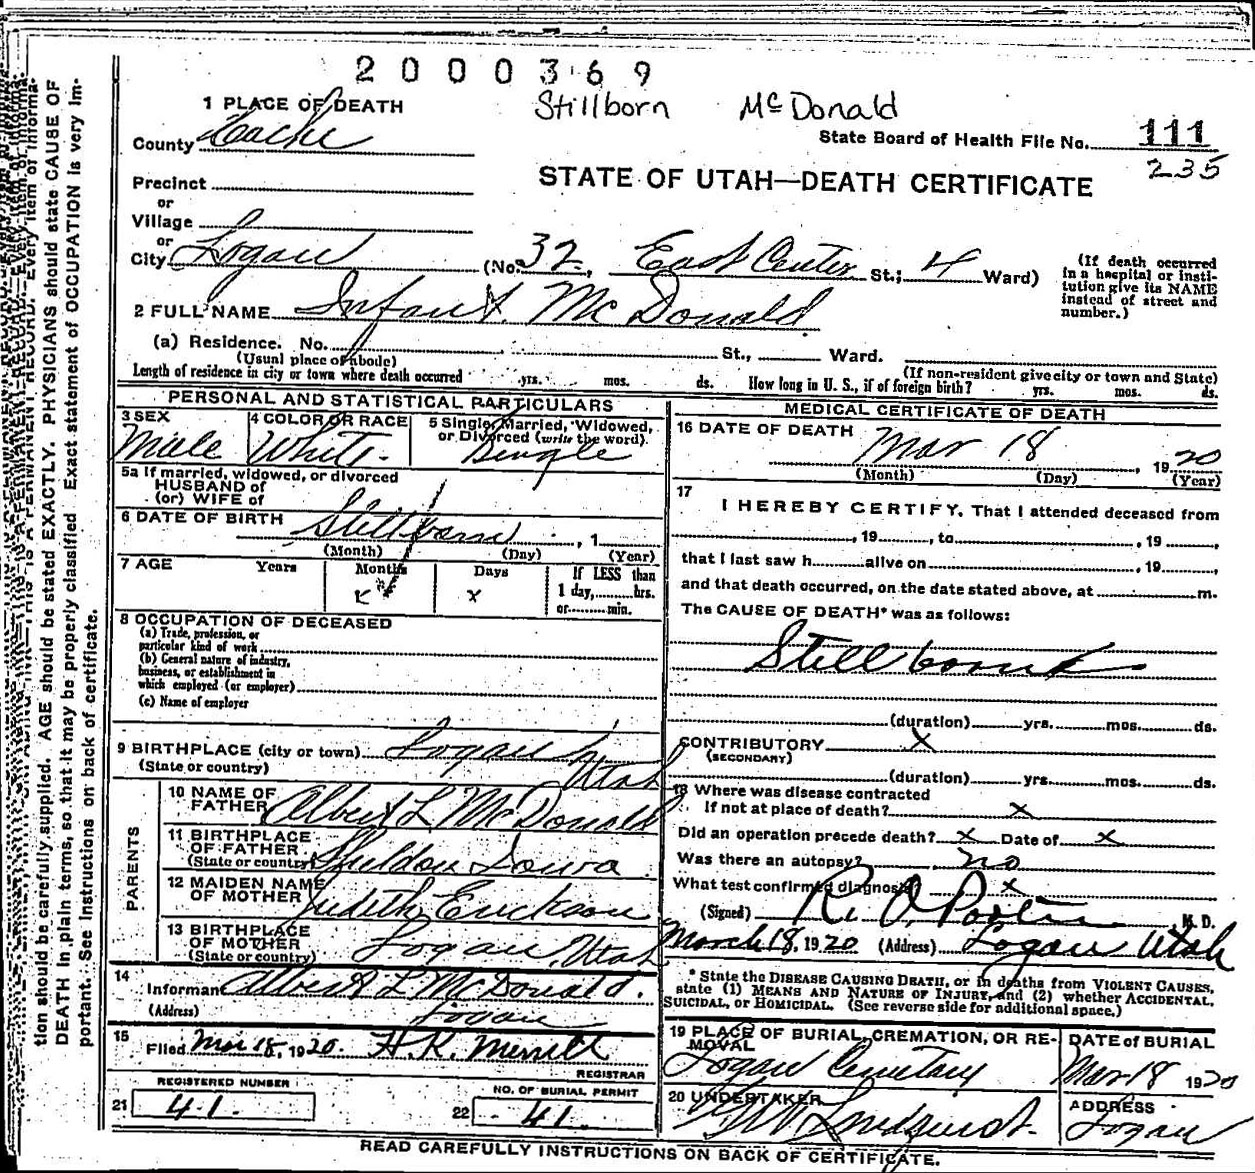 2000369
Stillborn McDonald
1 PLACE OF DEATH
County Cache
State Board of Health File No. 111
235
STATE OF UTAH—DEATH CERTIFICATE
Precinct
or
Village
or
City Logan (No. 32, East Center St.; 4 Ward)
(If death occurred in a hospital or institution give its NAME instead of street and number.)
2 FULL NAME Infant McDonald
(a) Residence. No. St., Ward.
(Usual place of abode) (If non-resident give city or town and State)
Length of residence in city or town where death occurred yrs. mos. ds. How long in U. S., if of foreign birth? yrs. mos. ds.
PERSONAL AND STATISTICAL PARTICULARS
3 SEX 4 COLOR OR RACE 5 Single, Married, Widowed, or Divorced (write the word).
Male White. Single
5a If married, widowed, or divorced
HUSBAND of
(or) WIFE of
6 DATE OF BIRTH Stillborn , 1
(Month) (Day) (Year)
7 AGE Years Months Days If LESS than
1 day, hrs.
or min.
x
8 OCCUPATION OF DECEASED
(a) Trade, profession, or
particular kind of work
(b) General nature of industry,
business, or establishment in
which employed (or employer)
(c) Name of employer
9 BIRTHPLACE (city or town) Logan
(State or country) Utah
PARENTS
10 NAME OF
FATHER Albert L McDonald
11 BIRTHPLACE
OF FATHER
(State or country) Sheldon Iowa
12 MAIDEN NAME
OF MOTHER Judith Erickson
13 BIRTHPLACE
OF MOTHER
(State or country) Logan, Utah
14
Informant Albert L McDonald.
(Address) Logan
15
Filed Mar 18, 1920. H. R. Merrill
REGISTRAR
REGISTERED NUMBER NO. OF BURIAL PERMIT
21 41. 22 41.
MEDICAL CERTIFICATE OF DEATH
16 DATE OF DEATH
Mar 18, 1920
(Month) (Day) (Year)
17
I HEREBY CERTIFY, That I attended deceased from
, 19 , to , 19 ,
that I last saw h alive on , 19 ,
and that death occurred, on the date stated above, at m.
The CAUSE OF DEATH* was as follows:
Stillborn
(duration) yrs. mos. ds.
CONTRIBUTORY X
(SECONDARY)
(duration) yrs. mos. ds.
18 Where was disease contracted
If not at place of death? X
Did an operation precede death? X Date of X
Was there an autopsy? no
What test confirmed diagnosis? x
(Signed) R. O. Porter M.D.
March 18, 1920 (Address) Logan Utah
* State the DISEASE CAUSING DEATH, or in deaths from VIOLENT CAUSES,
state (1) MEANS AND NATURE OF INJURY, and (2) whether ACCIDENTAL,
SUICIDAL, OR HOMICIDAL. (See reverse side for additional space.)
19 PLACE OF BURIAL, CREMATION, OR RE-
MOVAL
DATE of BURIAL
Logan Cemetary Mar 18 1920
20 UNDERTAKER ADDRESS
Lindquist. Logan
READ CAREFULLY INSTRUCTIONS ON BACK OF CERTIFICATE.
tion should be carefully supplied. AGE should be stated EXACTLY. PHYSICIANS should state CAUSE OF
DEATH in plain terms, so that it may be properly classified. Exact statement of OCCUPATION is very im-
portant. See instructions on back of certificate.